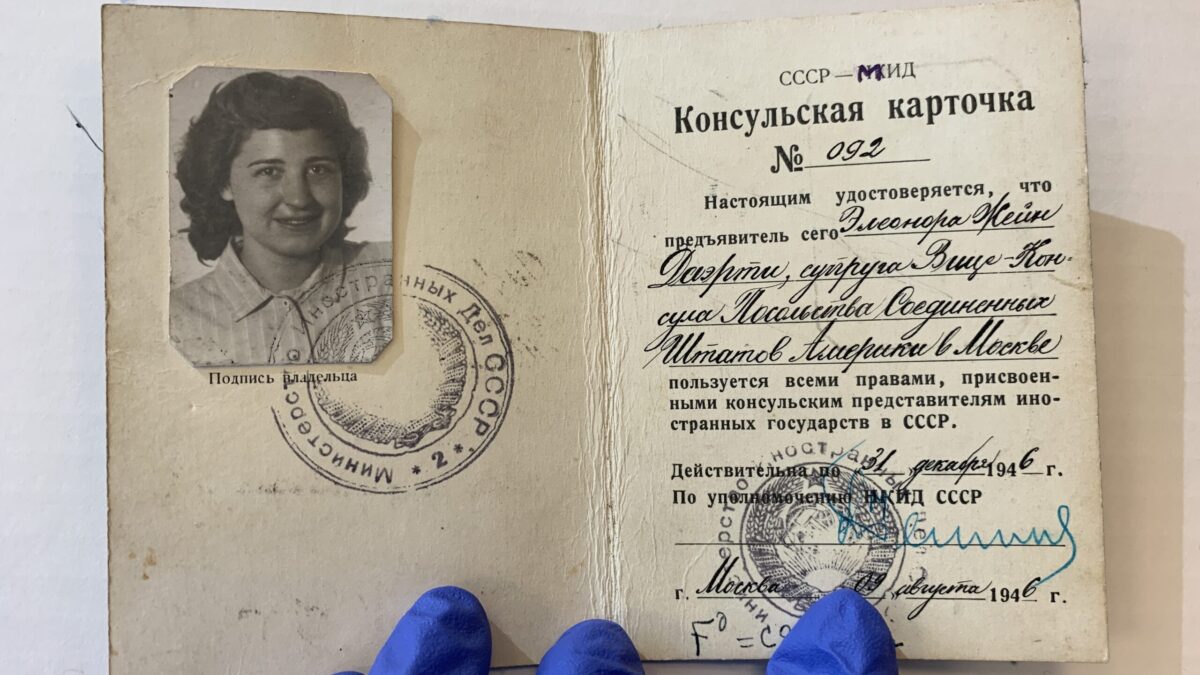 Подпись владельца
Министерство Иностранных Дел СССР * 2 *
СССР — МИД
Консульская карточка
№ 092
Настоящим удостоверяется, что
предъявитель сего Элеонора Жейн
Даэрти, супруга Вице-Кон-
сула Посольства Соединенных
Штатов Америки в Москве
пользуется всеми правами, присвоен-
ными консульским представителям ино-
странных государств в СССР.
Действительна по 31 декабря 1946 г.
По уполномочению НКИД СССР
г. Москва 09 августа 1946 г.